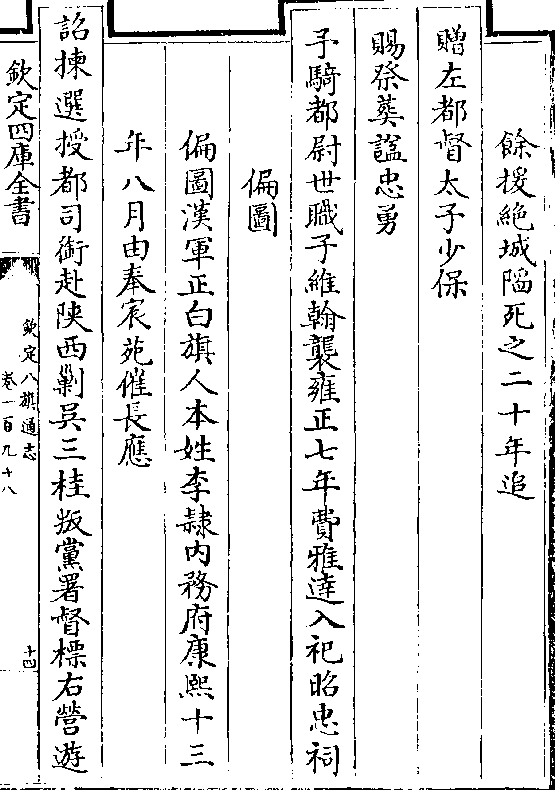 餘援絶城陷死之二十年追
贈左都督太子少保
賜祭葬諡忠勇
子騎都尉世職子維翰襲雍正七年費雅達入祀昭忠祠
偏圖
偏圖漢軍正白旗人本姓李隸内務府康熙十三
年八月由奉宸苑催長應
詔揀選授都司銜赴陕西剿吳三桂叛黨署督標右營遊
欽定四庫全書
欽定八旗通志
卷一百九十八
十四